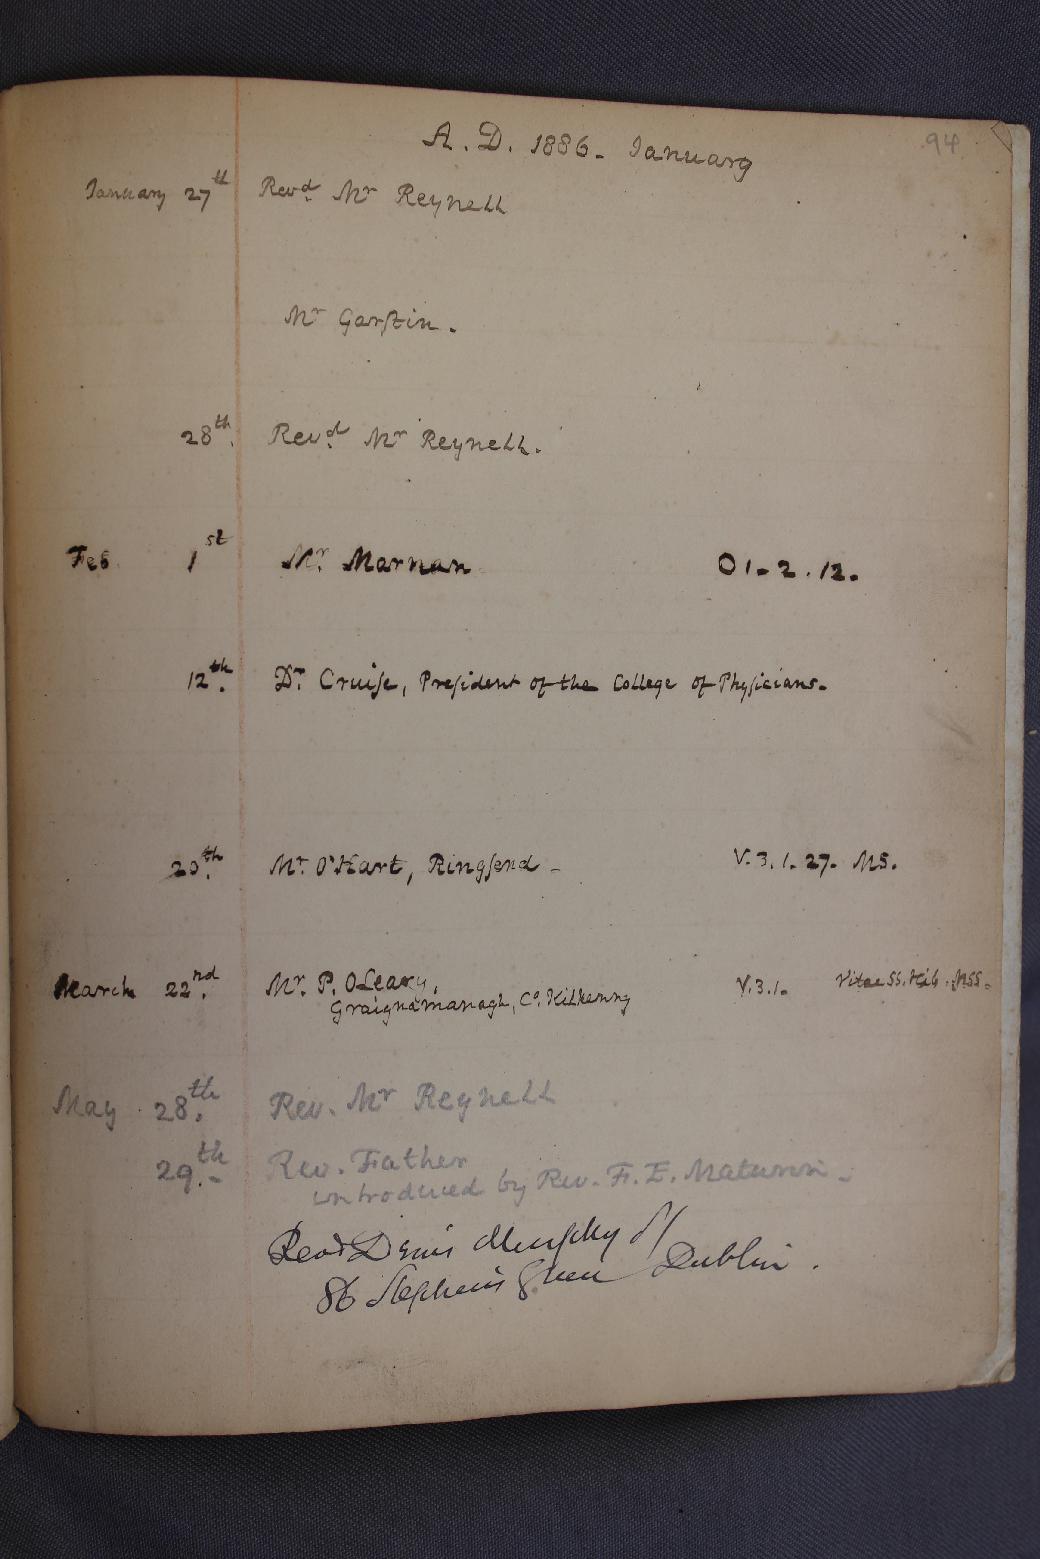 94
A. D. 1886. January
January 27th Revd. Mr Reynell
Mr Garstin.
28th. Revd. Mr Reynell.
Feb 1st Mr. Marnan O1.2.12.
12th. Dr. Cruise, President of the College of Physicians.
20th. Mr. O'Hart, Ringsend - V.3.1.27. MS.
March 22nd. Mr. P. O'Leary, V.3.1. Vitae SS. Hib. MSS.
Graignamanagh, Co. Kilkenny
May 28th. Rev. Mr Reynell
29th. Rev. Father
introduced by Rev. F. E. Maturin.
Revd Denis Murphy SJ
86 Stephens Green Dublin.